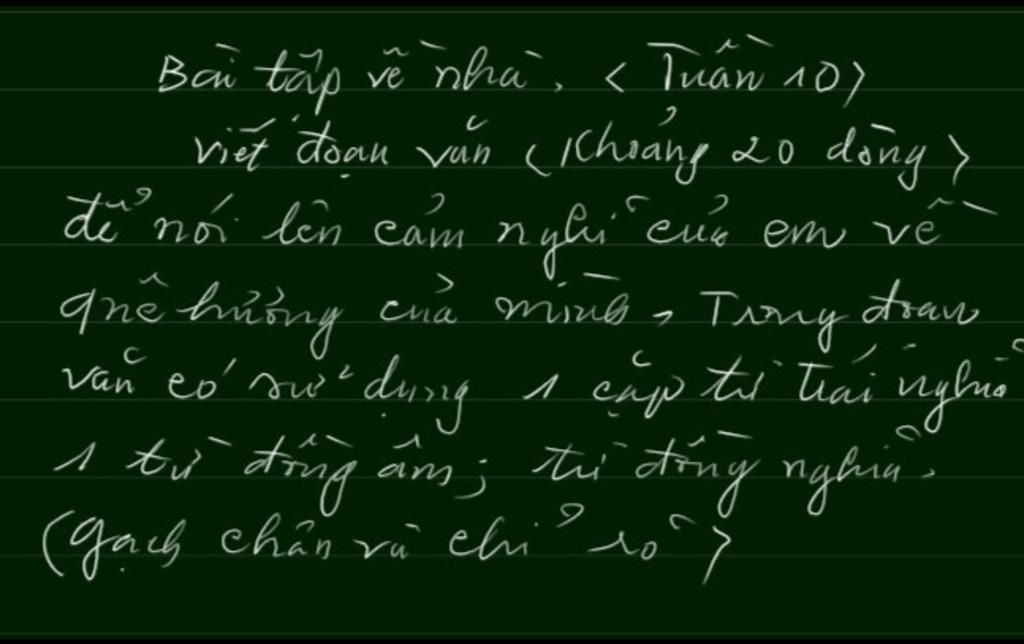 Bài tập về nhà. < Tuần 10 >
viết đoạn văn < Khoảng 20 dòng >
để nói lên cảm nghĩ của em về
quê hương của mình, Trong đoạn
văn có sử dụng 1 cặp từ trái nghĩa
1 từ đồng âm; từ đồng nghĩa.
(gạch chân và chỉ rõ >